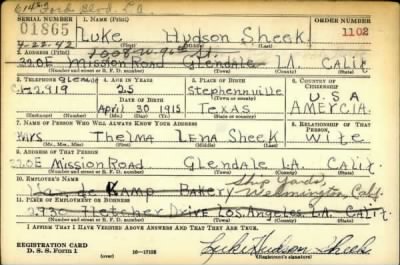 614 S Ford Blvd. L A
SERIAL NUMBER 1. NAME (Print) ORDER NUMBER
01865 Luke Hudson Sheek 1102
4-22-42
(First) (Middle) (Last)
2. ADDRESS (Print)
320E Mission Road Glendale L.A. Calif
(Number and street or R. F. D. number) (Town) (County) (State)
3. TELEPHONE 4. AGE IN YEARS 5. PLACE OF BIRTH 6. COUNTRY OF CITIZENSHIP
Glendale 25 Stephennville U.S.A
2919 DATE OF BIRTH Texas AMERCIA.
April 30 1915
(Mo.) (Day) (Yr.) (State or country)
7. NAME OF PERSON WHO WILL ALWAYS KNOW YOUR ADDRESS 8. RELATIONSHIP OF THAT PERSON
Mrs Thelma Lena Sheek Wife
(Mr., Mrs., Miss) (First) (Middle) (Last)
9. ADDRESS OF THAT PERSON
320E Mission Road Glendale L.A. Calif.
(Number and street or R. F. D. number) (Town) (County) (State)
10. EMPLOYER'S NAME
Van de Kamp Bakery Ship Yards Wilmington, Calif.
11. PLACE OF EMPLOYMENT OR BUSINESS
2930 Fletcher Drive Los Angeles, L.A. Calif.
(Number and street or R. F. D. number) (Town) (County) (State)
I AFFIRM THAT I HAVE VERIFIED ABOVE ANSWERS AND THAT THEY ARE TRUE.
REGISTRATION CARD
D. S. S. Form 1 (over) 16—17105 Luke Hudson Sheek
(Registrant's signature)